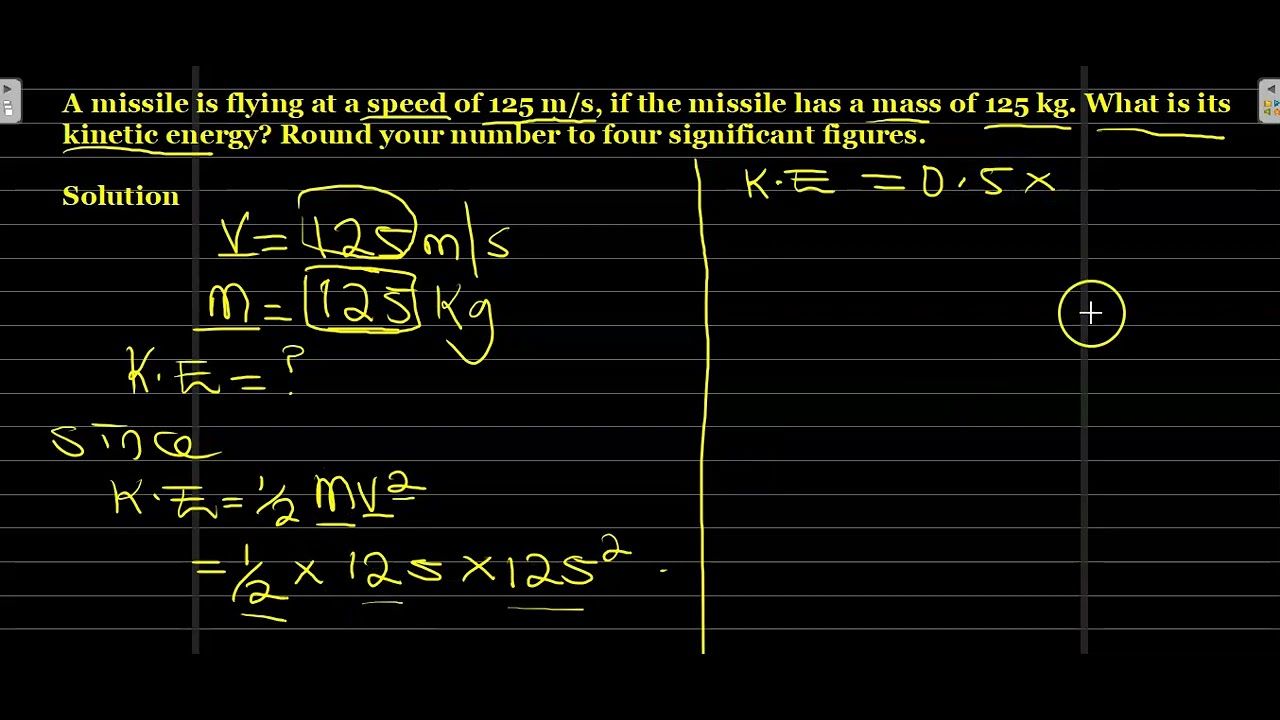 A missile is flying at a speed of 125 m/s, if the missile has a mass of 125 kg. What is its
kinetic energy? Round your number to four significant figures.
Solution
V = 125 m/s
m = 125 Kg
K.E = ?
since
K.E = 1/2 mv²
= 1/2 × 125 × 125²
K.E = 0.5 ×